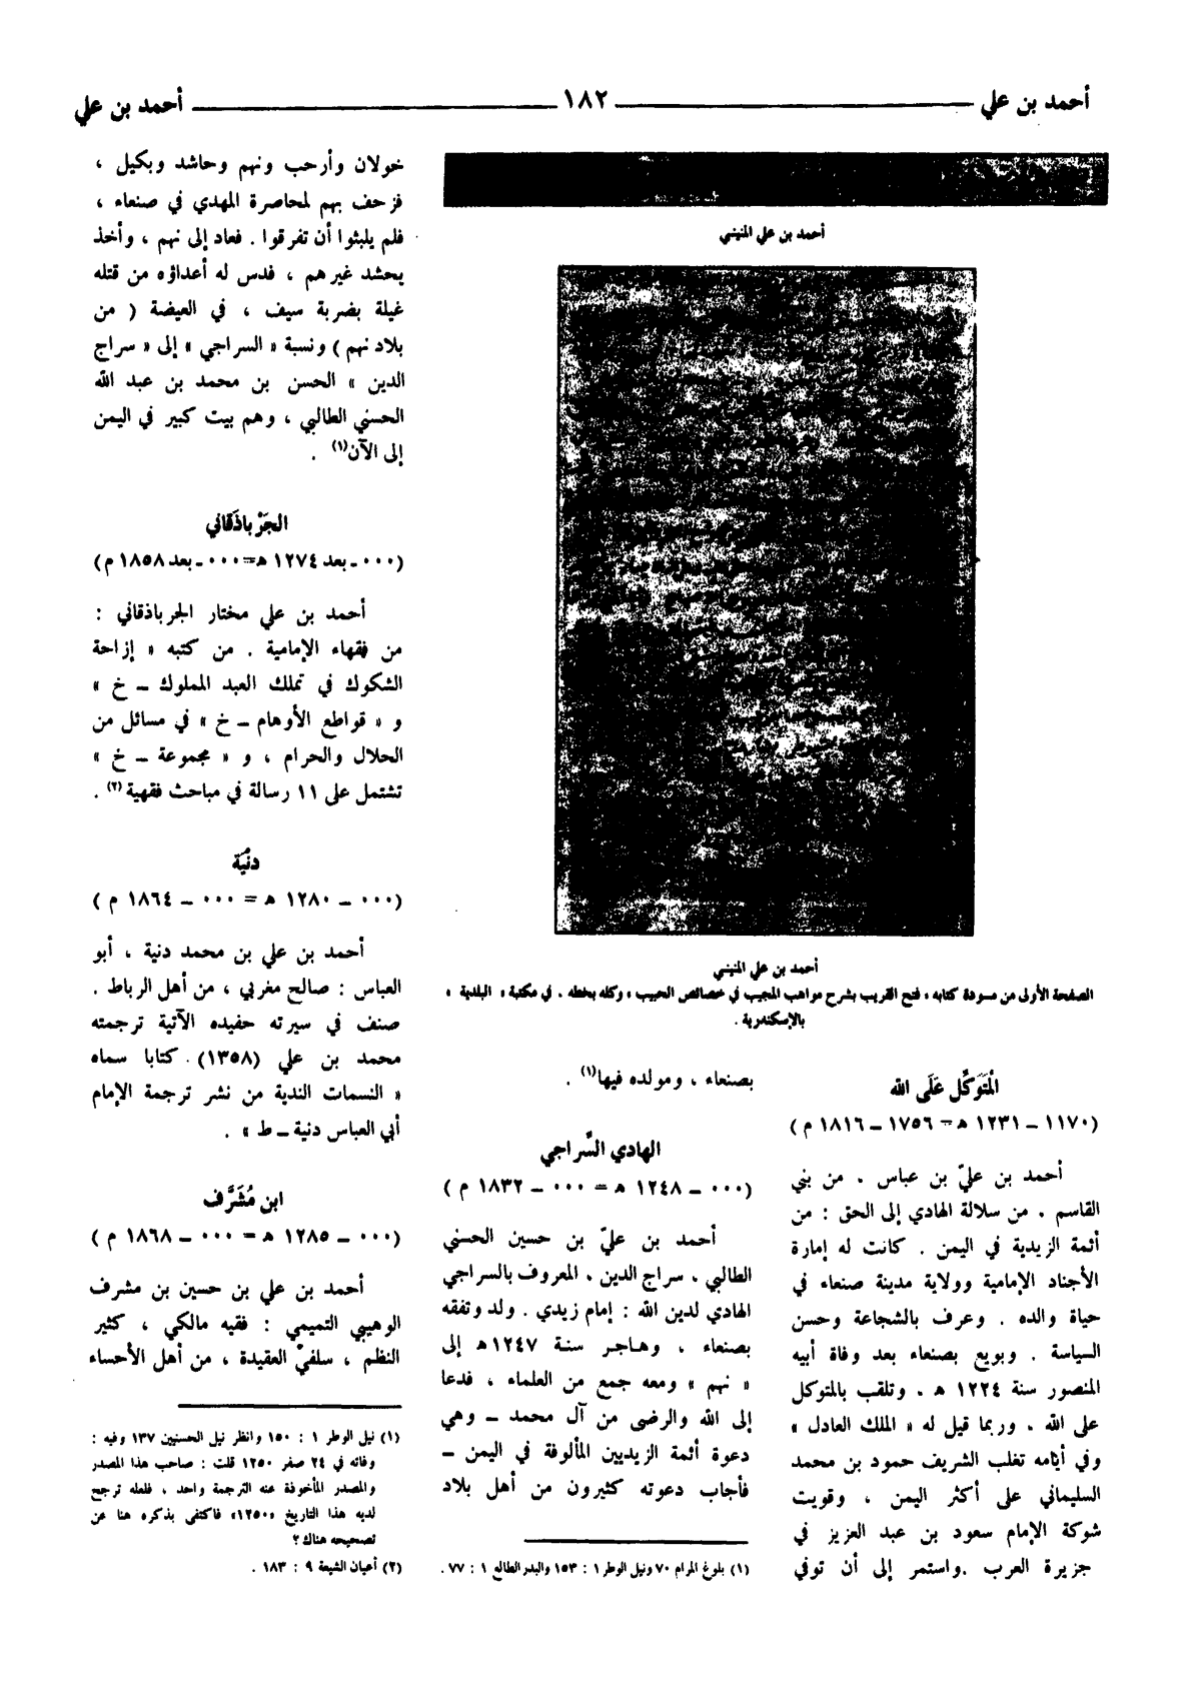 أحمد بن علي
١٨٢
أحمد بن علي
أحمد بن علي المنيني
أحمد بن علي المنيني
الصفحة الأولى من مسودة كتابه « فتح القريب بشرح مواهب المجيب في خصائص الحبيب » وكله بخطه . في مكتبة « البلدية »
بالإسكندرية .
الْمُتَوَكِّل عَلَى الله
(١١٧٠ – ١٢٣١ هـ = ١٧٥٦ – ١٨١٦ م)
أحمد بن عليّ بن عباس ، من بني
القاسم ، من سلالة الهادي إلى الحق : من
أئمة الزيدية في اليمن . كانت له إمارة
الأجناد الإمامية وولاية مدينة صنعاء في
حياة والده . وعرف بالشجاعة وحسن
السياسة . وبويع بصنعاء بعد وفاة أبيه
المنصور سنة ١٢٢٤ هـ ، وتلقب بالمتوكل
على الله . وربما قيل له « الملك العادل »
وفي أيامه تغلب الشريف حمود بن محمد
السليماني على أكثر اليمن ، وقويت
شوكة الإمام سعود بن عبد العزيز في
جزيرة العرب .واستمر إلى أن توفي
بصنعاء ، ومولده فيها(١) .
الهادي السِّراجي
(٠٠٠ – ١٢٤٨ هـ = ٠٠٠ – ١٨٣٢ م)
أحمد بن عليّ بن حسين الحسني
الطالبي ، سراج الدين ، المعروف بالسراجي
الهادي لدين الله : إمام زيدي . ولد وتفقه
بصنعاء ، وهاجر سنة ١٢٤٧هـ إلى
« نهم » ومعه جمع من العلماء ، فدعا
إلى الله والرضى من آل محمد – وهي
دعوة أئمة الزيديين المألوفة في اليمن –
فأجاب دعوته كثيرون من أهل بلاد
(١) بلوغ المرام ٧٠ ونيل الوطر ١ : ١٥٣ والبدر الطالع ١ : ٧٧ .
خولان وأرحب ونهم وحاشد وبكيل ،
فزحف بهم لمحاصرة المهدي في صنعاء ،
فلم يلبثوا أن تفرقوا . فعاد إلى نهم ، وأخذ
يحشد غيرهم ، فدس له أعداؤه من قتله
غيلة بضربة سيف ، في الغيضة ( من
بلاد نهم ) ونسبة « السراجي » إلى « سراج
الدين » الحسن بن محمد بن عبد الله
الحسني الطالبي ، وهم بيت كبير في اليمن
إلى الآن(١) .
الجَرْباذَقاني
(٠٠٠ - بعد ١٢٧٤ هـ = ٠٠٠ - بعد ١٨٥٨ م)
أحمد بن علي مختار الجرباذقاني :
من فقهاء الإمامية . من كتبه « إزاحة
الشكوك في تملك العبد المملوك – خ »
و « قواطع الأوهام – خ » في مسائل من
الحلال والحرام ، و « مجموعة – خ »
تشتمل على ١١ رسالة في مباحث فقهية (٢) .
دِنْيَة
(٠٠٠ – ١٢٨٠ هـ = ٠٠٠ – ١٨٦٤ م)
أحمد بن علي بن محمد دنية ، أبو
العباس : صالح مغربي ، من أهل الرباط .
صنف في سيرته حفيده الآتية ترجمته
محمد بن علي (١٣٥٨) كتابا سماه
« النسمات الندية من نشر ترجمة الإمام
أبي العباس دنية – ط » .
ابن مُشَرَّف
(٠٠٠ – ١٢٨٥ هـ = ٠٠٠ – ١٨٦٨ م)
أحمد بن علي بن حسين بن مشرف
الوهيبي التميمي : فقيه مالكي ، كثير
النظم ، سلفيّ العقيدة ، من أهل الأحساء
(١) نيل الوطر ١ : ١٥٠ وانظر نيل الحسنيين ١٣٧ وفيه :
وفاته في ٢٤ صفر ١٢٥٠ قلت : صاحب هذا المصدر
والمصدر المأخوذة عنه الترجمة واحد ، فلعله ترجح
لديه هذا التاريخ «١٢٥٠» فاكتفى بذكره هنا عن
تصحيحه هناك ؟
(٢) أعيان الشيعة ٩ : ١٨٣ .